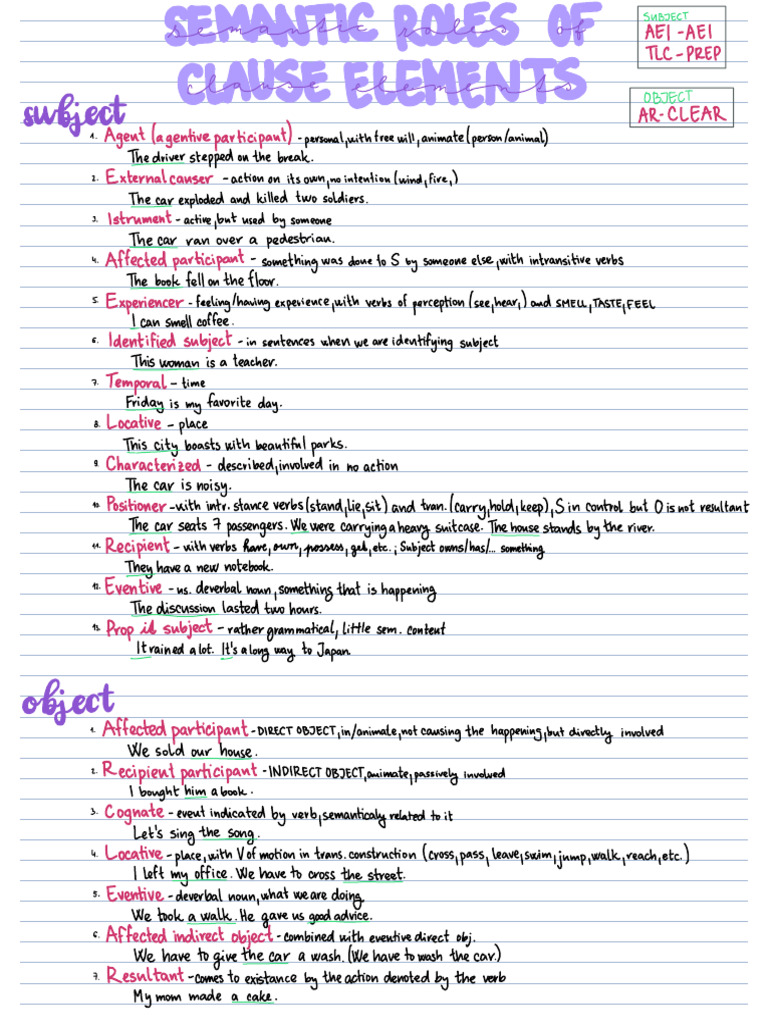 SEMANTIC ROLES OF
semantic roles of
CLAUSE ELEMENTS
clause elements
SUBJECT
AEI - AEI
TLC - PREP
OBJECT
AR-CLEAR
subject
1. Agent (agentive participant) - personal, with free will, animate (person/animal)
The driver stepped on the break.
2. External causer - action on its own, no intention (wind, fire,)
The car exploded and killed two soldiers.
3. Istrument - active, but used by someone
The car ran over a pedestrian.
4. Affected participant - something was done to S by someone else, with intransitive verbs
The book fell on the floor.
5. Experiencer - feeling/having experience, with verbs of perception (see, hear,) and SMELL, TASTE, FEEL
I can smell coffee.
6. Identified subject - in sentences when we are identifying subject
This woman is a teacher.
7. Temporal - time
Friday is my favorite day.
8. Locative - place
This city boasts with beautiful parks.
9. Characterized - described, involved in no action
The car is noisy.
10. Positioner - with intr. stance verbs (stand, lie, sit) and tran. (carry, hold, keep), S in control but O is not resultant
The car seats 7 passengers. We were carrying a heavy suitcase. The house stands by the river.
11. Recipient - with verbs have, own, possess, get, etc.; Subject owns/has/... something
They have a new notebook.
12. Eventive - us. deverbal noun, something that is happening
The discussion lasted two hours.
13. Prop it subject - rather grammatical, little sem. content
It rained a lot. It's a long way to Japan.
object
1. Affected participant - DIRECT OBJECT, in/animate, not causing the happening, but directly involved
We sold our house.
2. Recipient participant - INDIRECT OBJECT, animate, passively involved
I bought him a book.
3. Cognate - event indicated by verb, semanticaly related to it
Let's sing the song.
4. Locative - place, with V of motion in trans. construction (cross, pass, leave, swim, jump, walk, reach, etc.)
I left my office. We have to cross the street.
5. Eventive - deverbal noun, what we are doing
We took a walk. He gave us good advice.
6. Affected indirect object - combined with eventive direct obj.
We have to give the car a wash. (We have to wash the car.)
7. Resultant - comes to existance by the action denoted by the verb
My mom made a cake.